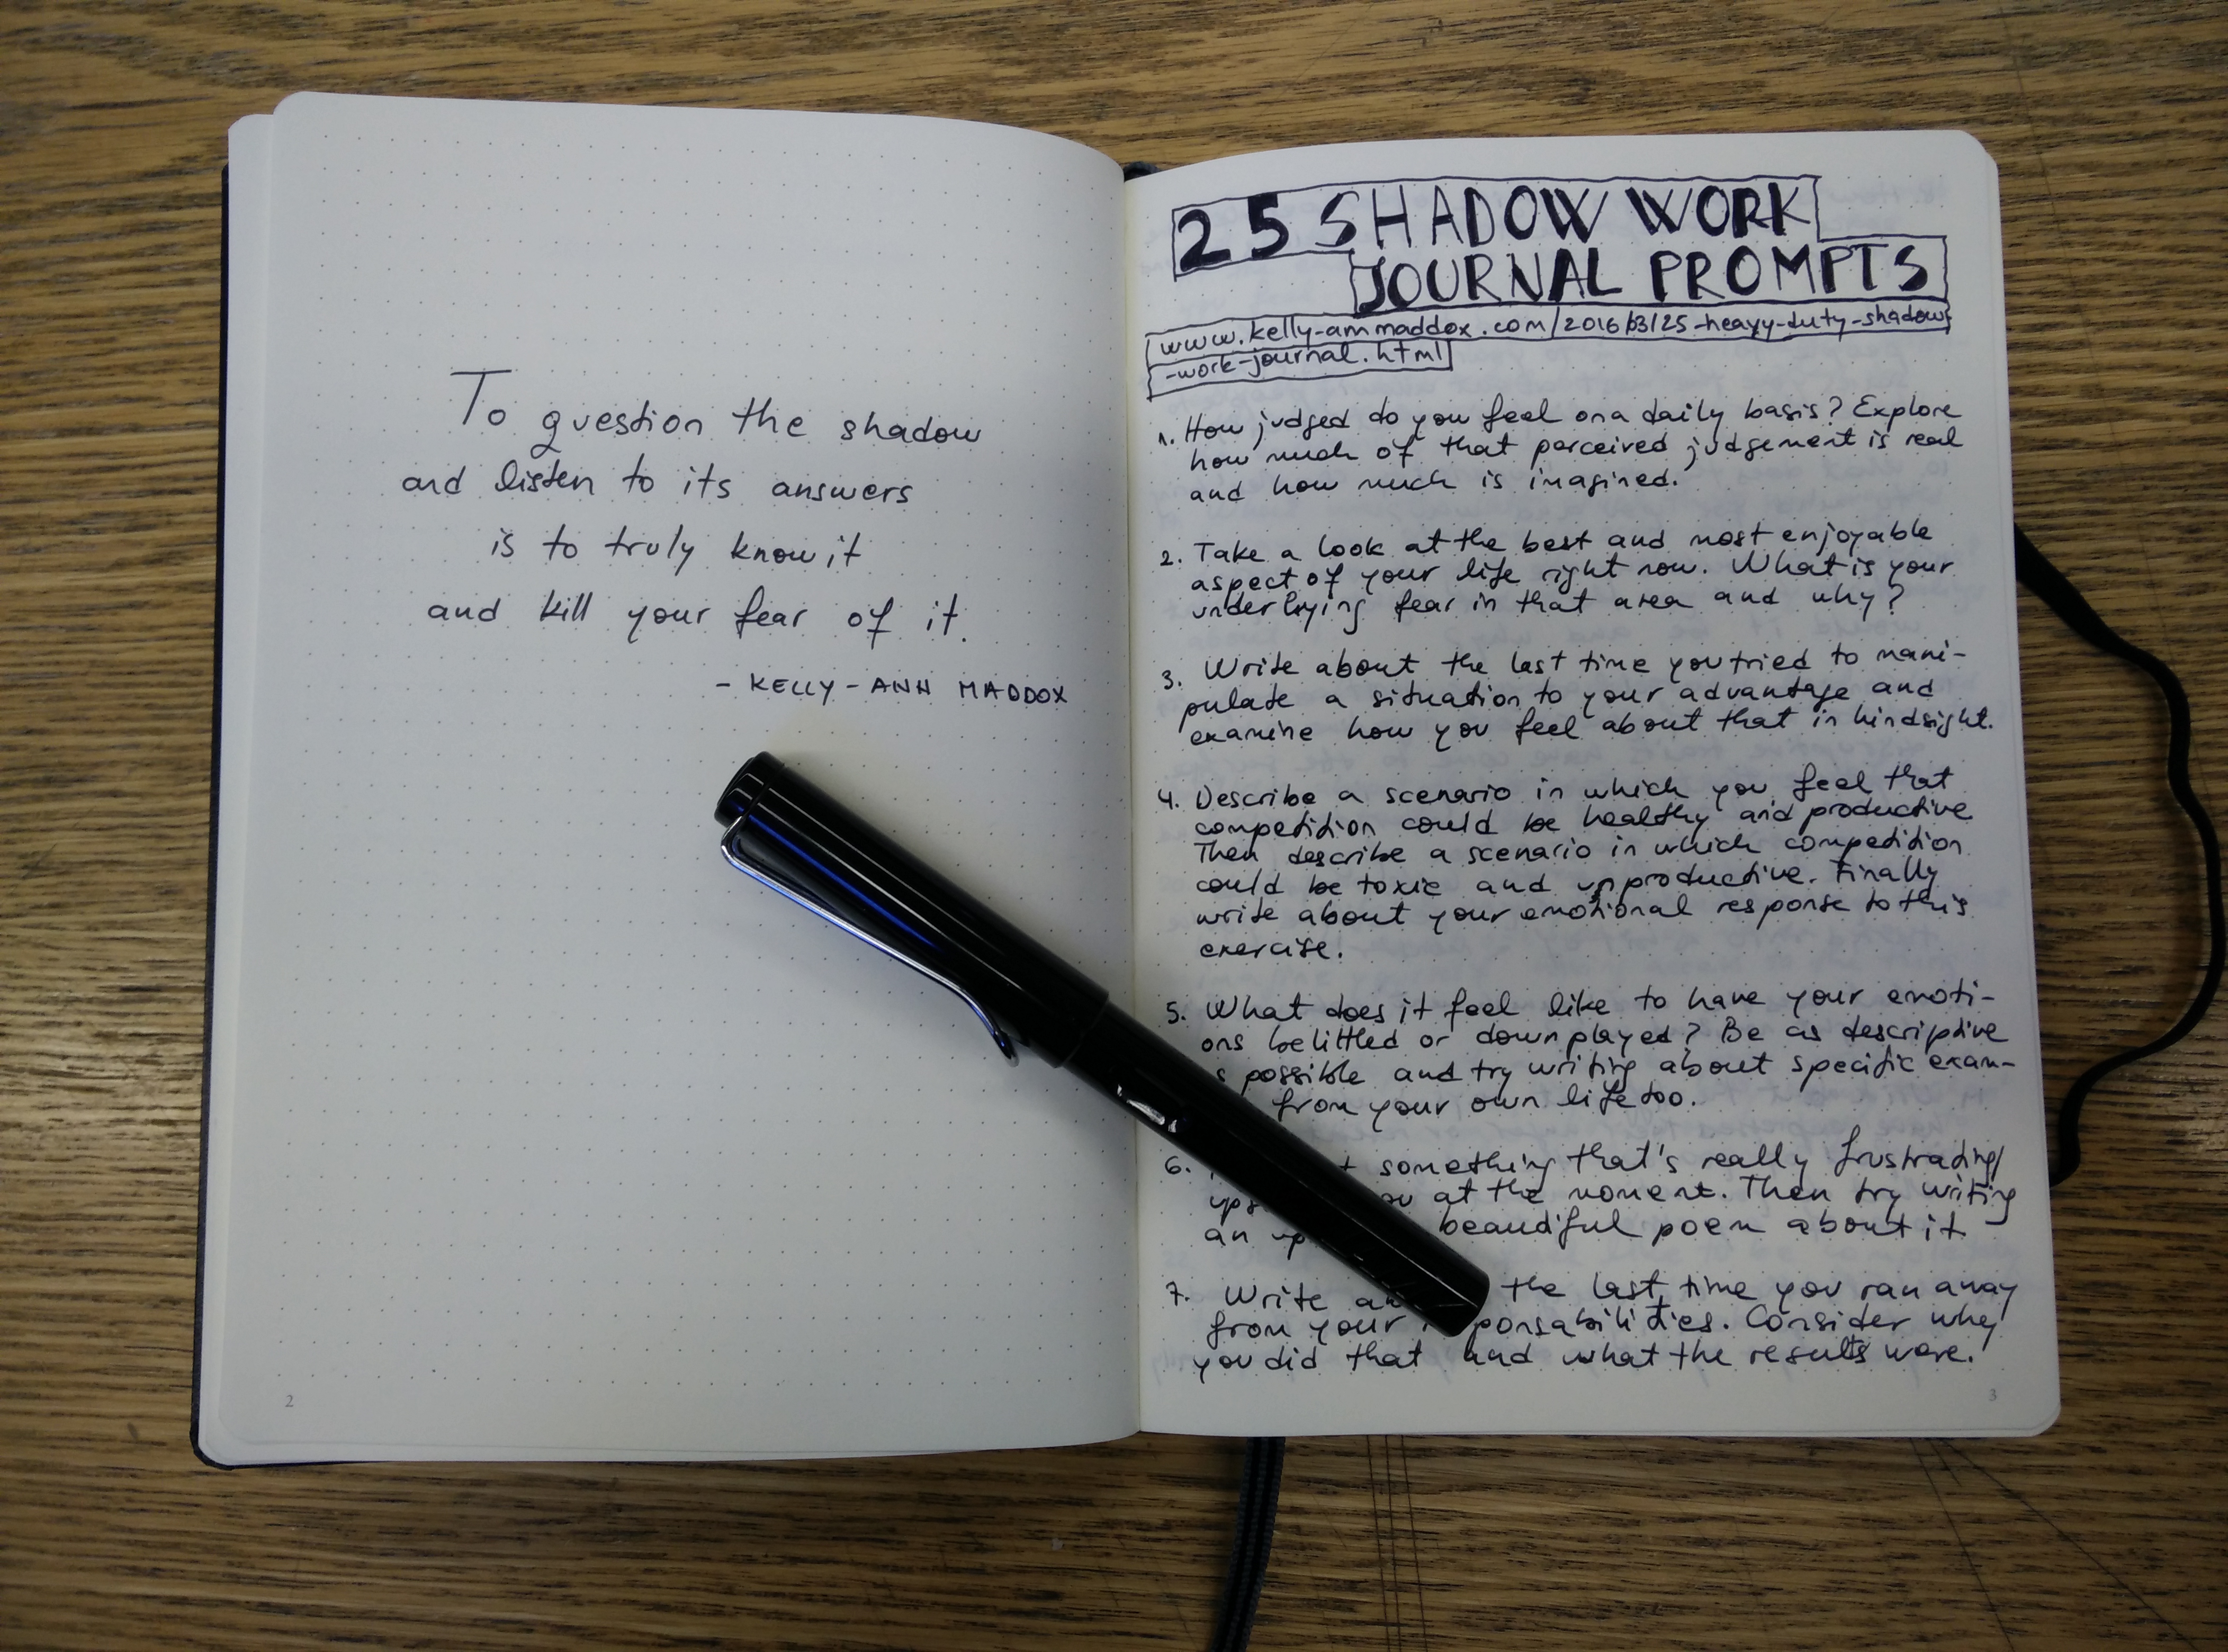 To question the shadow
and listen to its answers
is to truly know it
and kill your fear of it.
- KELLY-ANN MADDOX
2
25 SHADOW WORK
JOURNAL PROMPTS
www.kelly-ammaddox.com/2016/03/25-heavy-duty-shadow
-work-journal.html
1. How judged do you feel on a daily basis? Explore
how much of that perceived judgement is real
and how much is imagined.
2. Take a look at the best and most enjoyable
aspect of your life right now. What is your
underlying fear in that area and why?
3. Write about the last time you tried to mani-
pulate a situation to your advantage and
examine how you feel about that in hindsight.
4. Describe a scenario in which you feel that
competition could be healthy and productive.
Then describe a scenario in which competition
could be toxic and unproductive. Finally
write about your emotional response to this
exercise.
5. What does it feel like to have your emoti-
ons belittled or downplayed? Be as descriptive
possible and try writing about specific exam-
from your own life too.
6. something that's really frustrating/
at the moment. Then try writing
an beautiful poem about it
7. Write the last time you ran away
from your responsabilities. Consider why
you did that and what the results were.
3